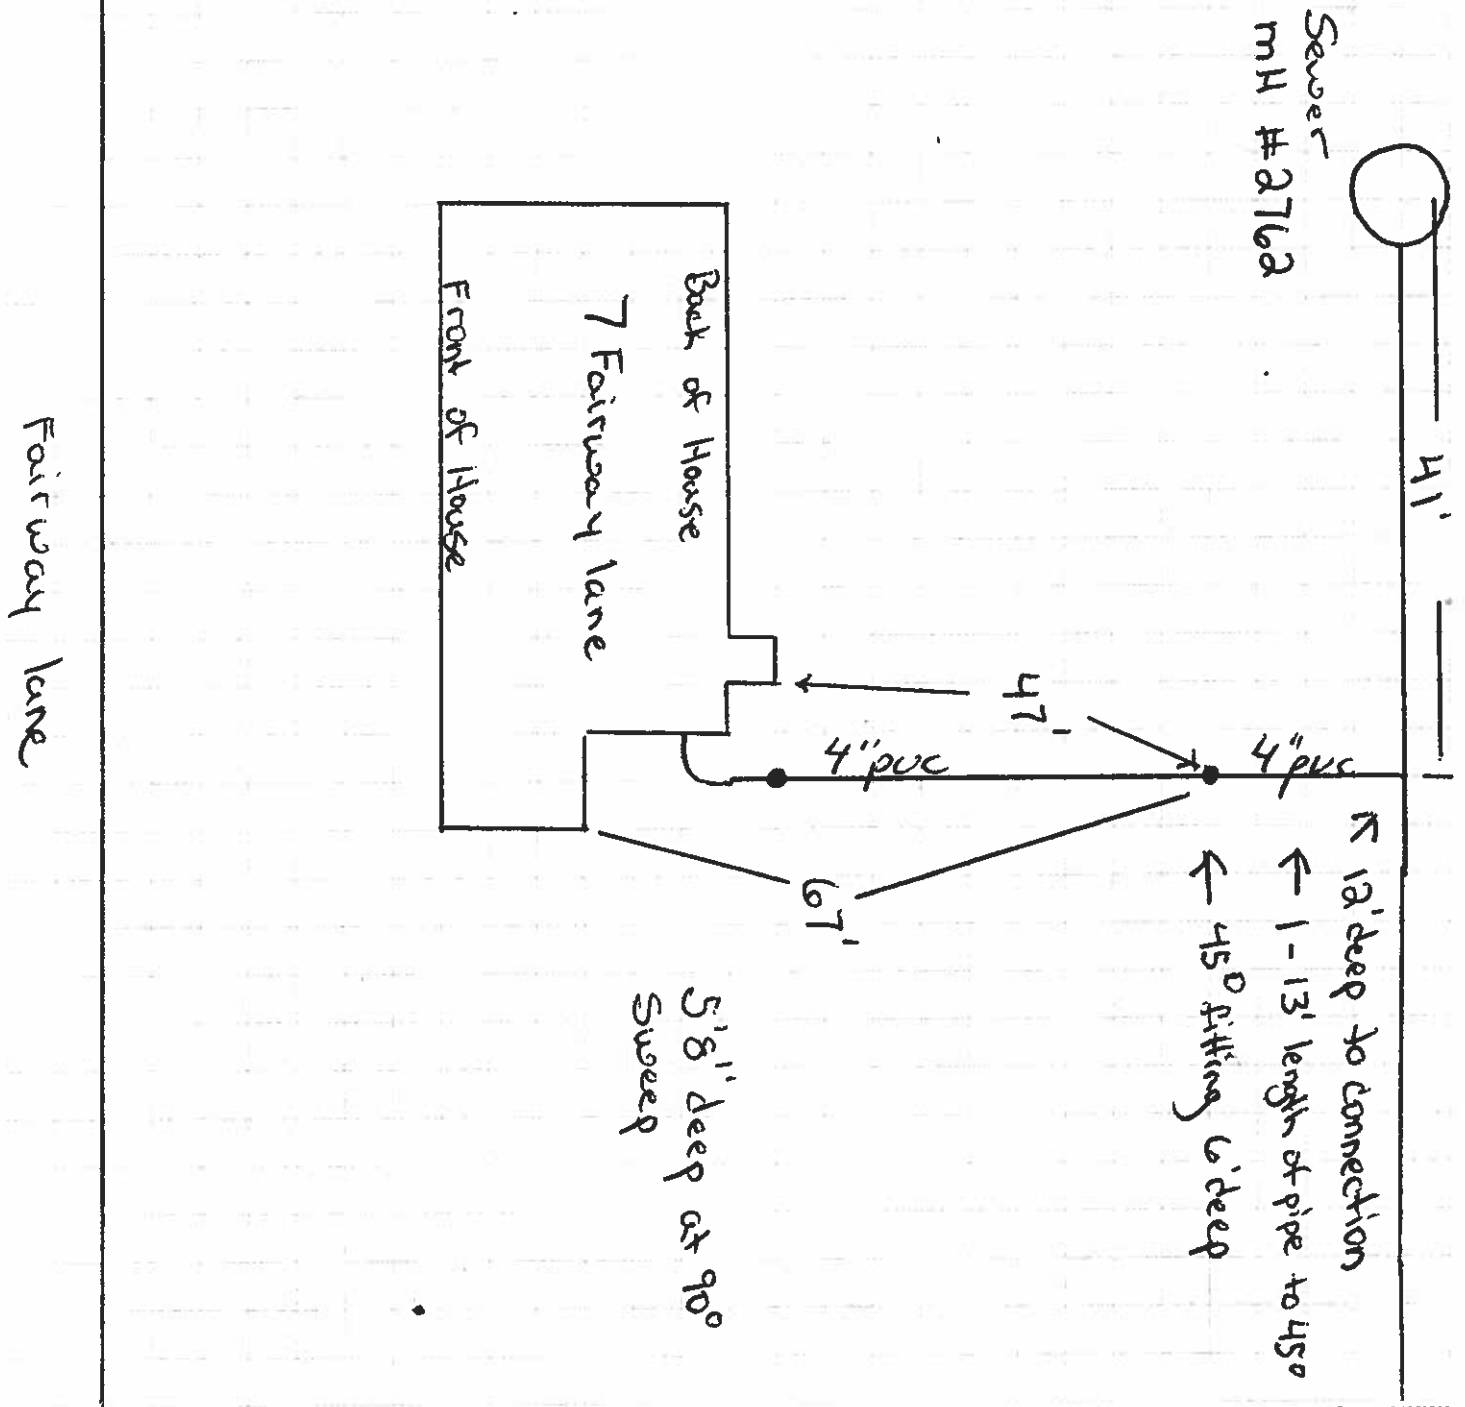 Sewer
mH #2762
41'
Back of House
7 Fairway lane
Front of House
47'
4" pvc
4" pvc
67'
12' deep to connection
1 - 13' length of pipe to 45°
45° fitting 6' deep
5'8" deep at 90°
Sweep
Fairway lane